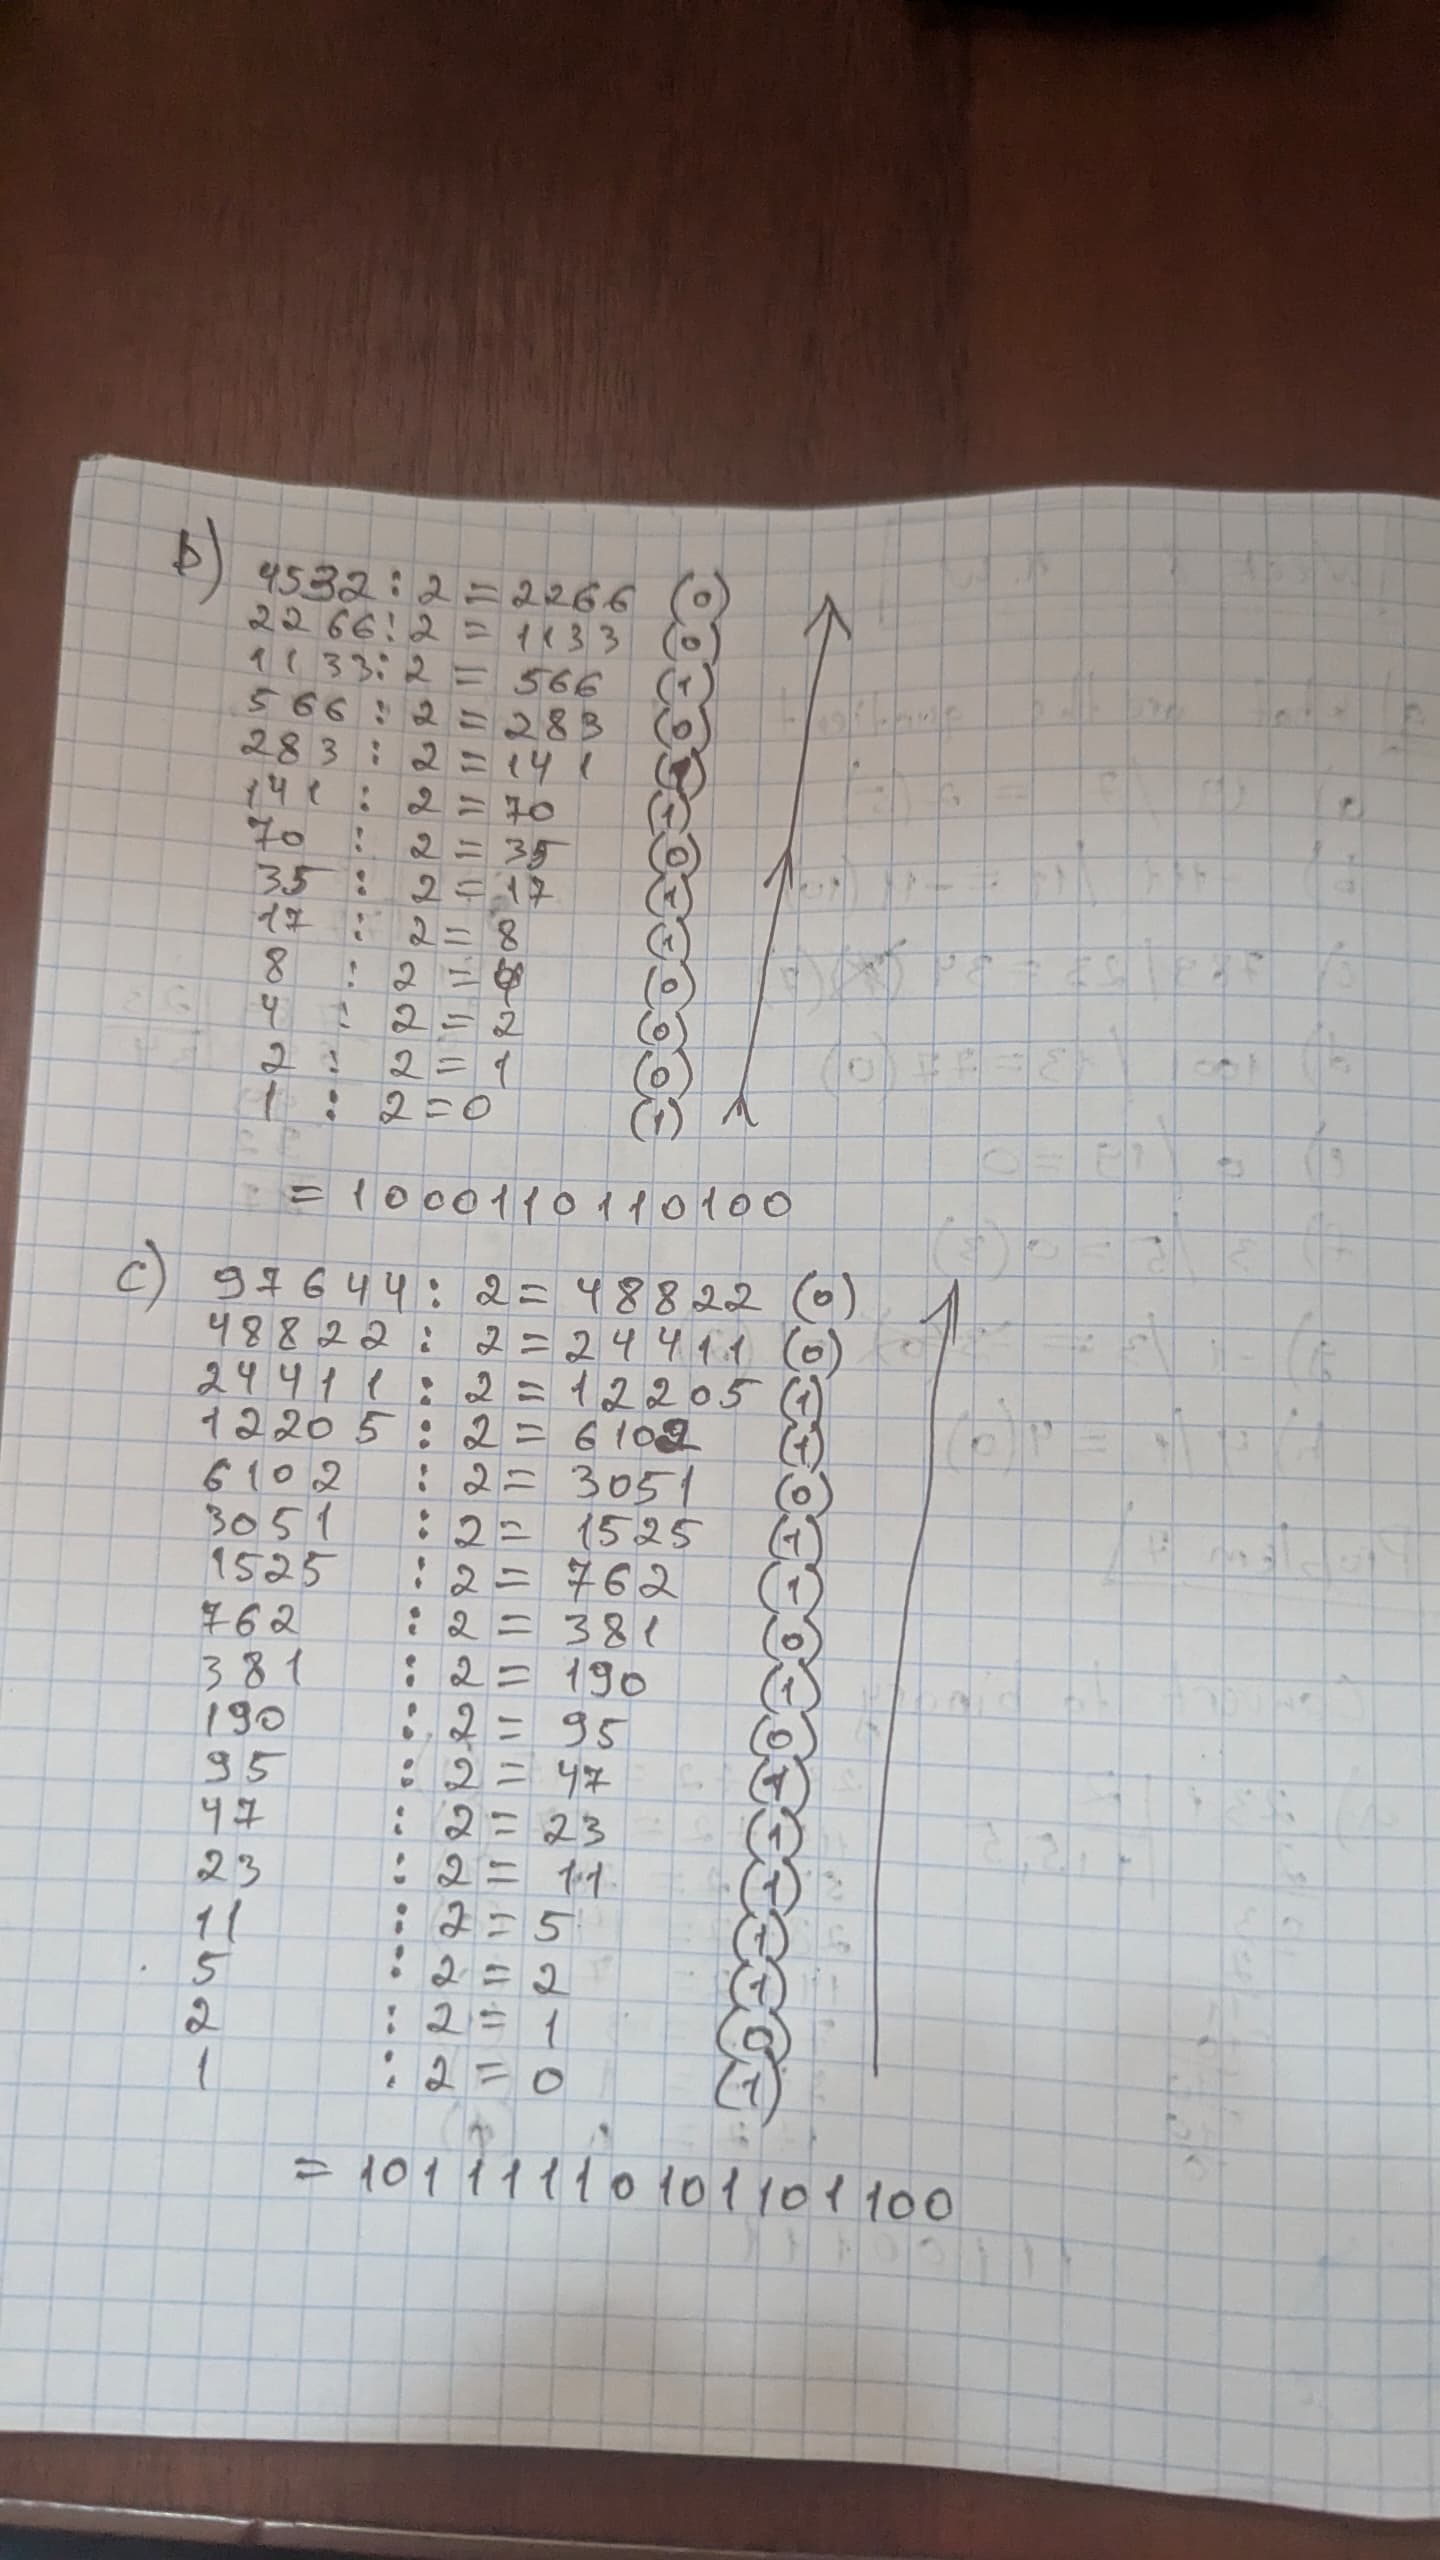 b) 4532 : 2 = 2266 (0)
2266 : 2 = 1133 (0)
1133 : 2 = 566 (1)
566 : 2 = 283 (0)
283 : 2 = 141 (1)
141 : 2 = 70 (1)
70 : 2 = 35 (0)
35 : 2 = 17 (1)
17 : 2 = 8 (1)
8 : 2 = 4 (0)
4 : 2 = 2 (0)
2 : 2 = 1 (0)
1 : 2 = 0 (1)
= 1000110110100
c) 97644 : 2 = 48822 (0)
48822 : 2 = 24411 (0)
24411 : 2 = 12205 (1)
12205 : 2 = 6102 (1)
6102 : 2 = 3051 (0)
3051 : 2 = 1525 (1)
1525 : 2 = 762 (1)
762 : 2 = 381 (0)
381 : 2 = 190 (1)
190 : 2 = 95 (0)
95 : 2 = 47 (1)
47 : 2 = 23 (1)
23 : 2 = 11 (1)
11 : 2 = 5 (1)
5 : 2 = 2 (1)
2 : 2 = 1 (0)
1 : 2 = 0 (1)
= 10111110101101100